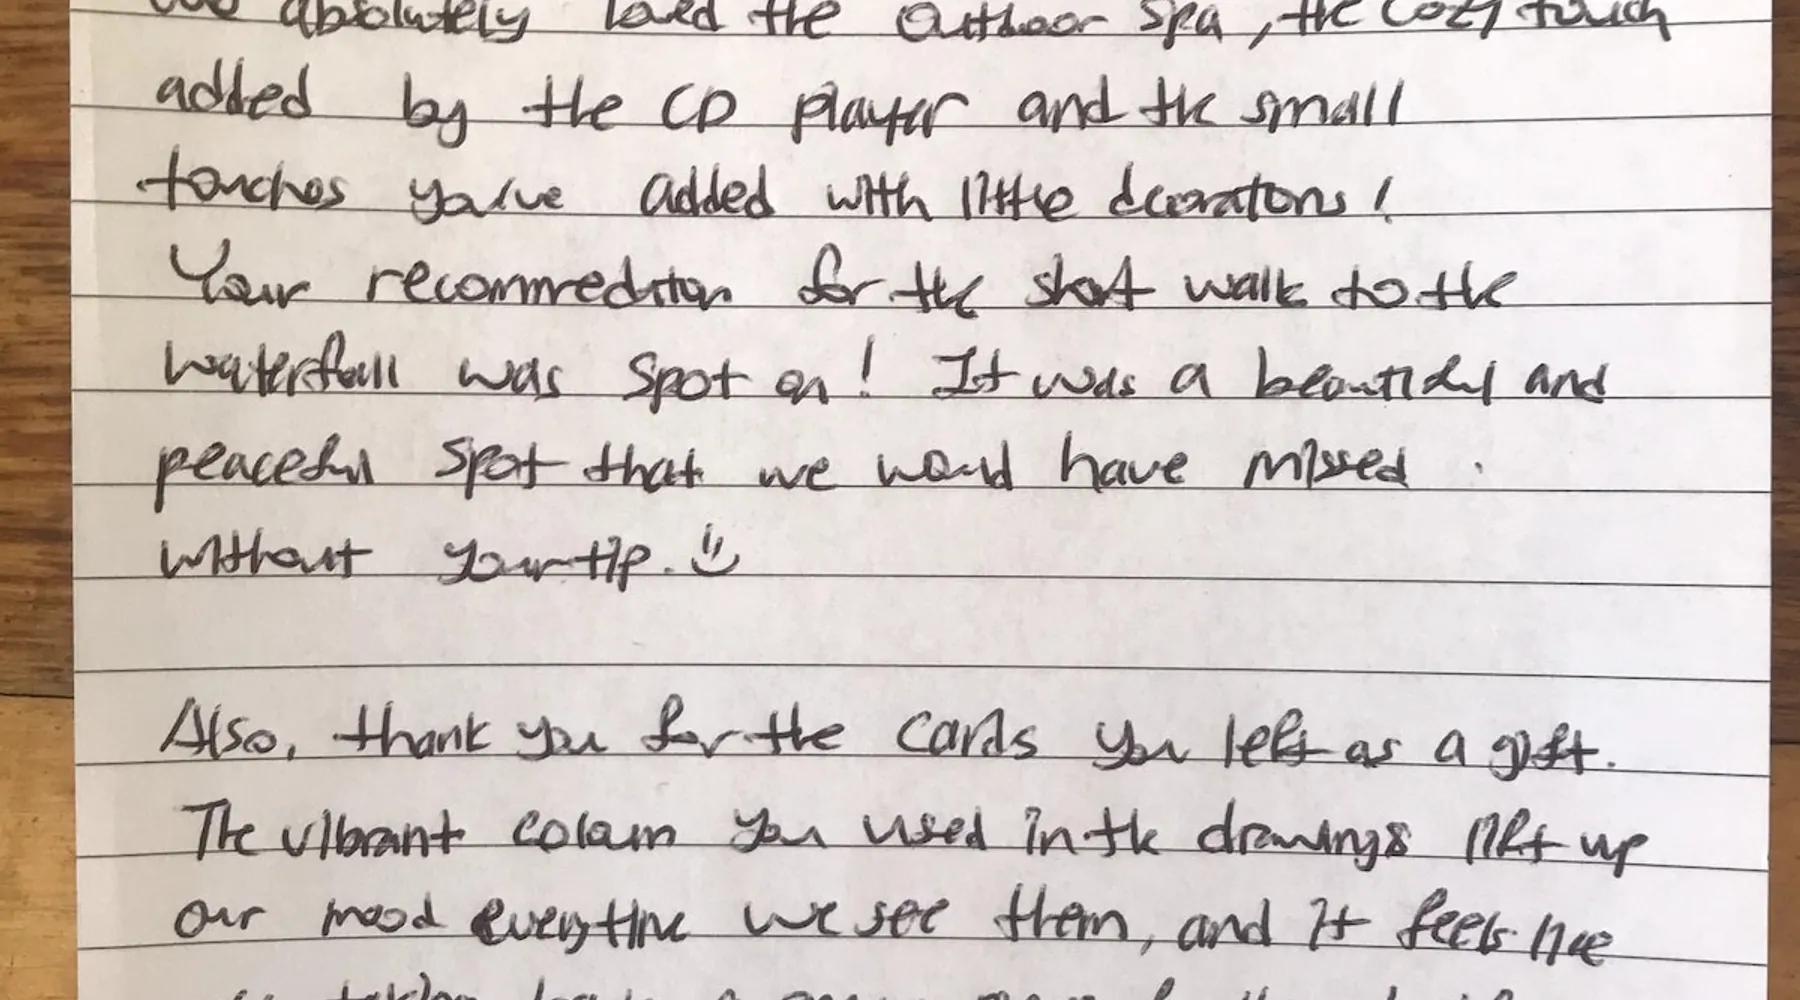 We absolutely loved the outdoor spa, the cozy touch
added by the CD player and the small
touches you've added with little decorations!
Your recommedation for the short walk to the
waterfall was spot on! It was a beautiful and
peaceful spot that we would have missed
without your tip.
Also, thank you for the cards you left as a gift.
The vibrant colours you used in the drawings lift up
our mood everytime we see them, and it feels like
taking